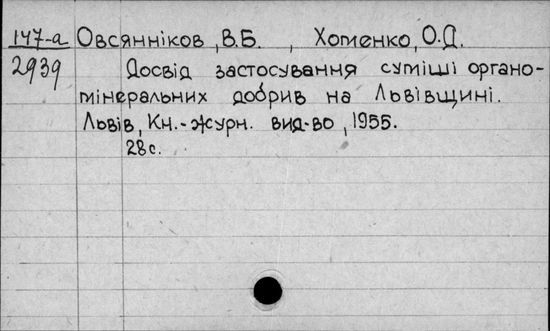 147-а Овсянніков, В.Б. , Хоменко, О.Д.
2939 Досвід застосування суміші органо-
мінеральних добрив на Львівщині.
Львів, Кн.-журн. вид-во, 1955.
28с.